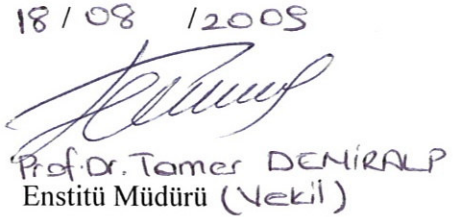 18 / 08 / 2009
Prof. Dr. Tamer DEMİRALP
Enstitü Müdürü (Vekil)